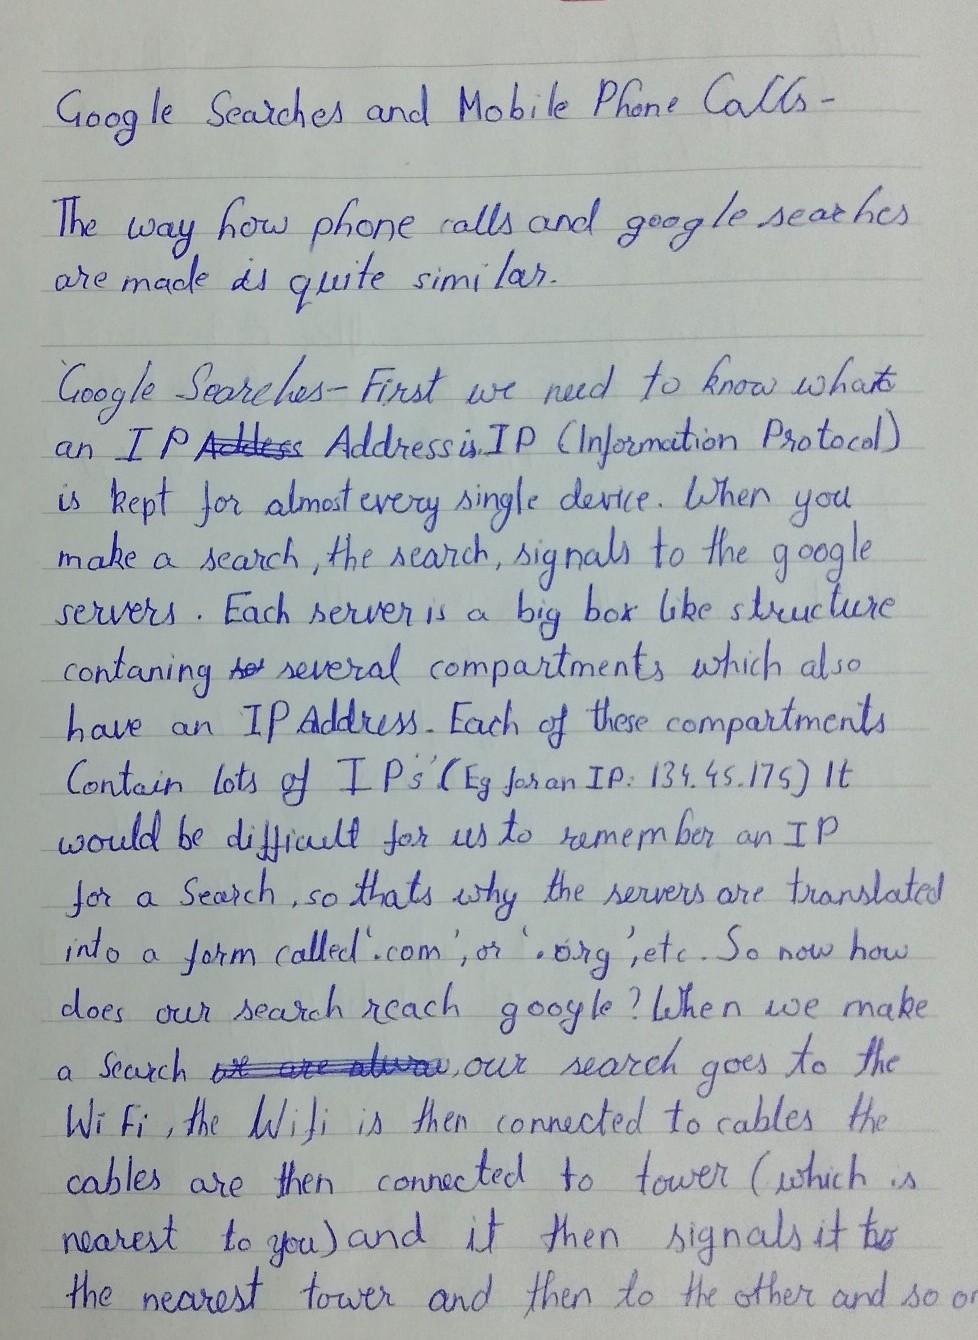 Google Searches and Mobile Phone Calls -
The way how phone calls and google searhes
are made is quite similar.
Google Searches - First we need to know what
an IP Address Address is. IP (Information Protocol)
is kept for almost every single device. When you
make a search, the search, signals to the google
servers. Each server is a big box like structure
contaning several compartments which also
have an IP Address. Each of these compartments
Contain lots of IPs' (Eg for an IP: 134.45.175) It
would be difficult for us to remember an IP
for a Search, so thats why the servers are translated
into a form called '.com', or '.org', etc. So now how
does our search reach google? When we make
a Search our search goes to the
WiFi, the Wifi is then connected to cables the
cables are then connected to tower (which is
nearest to you) and it then signals it to
the nearest tower and then to the other and so on